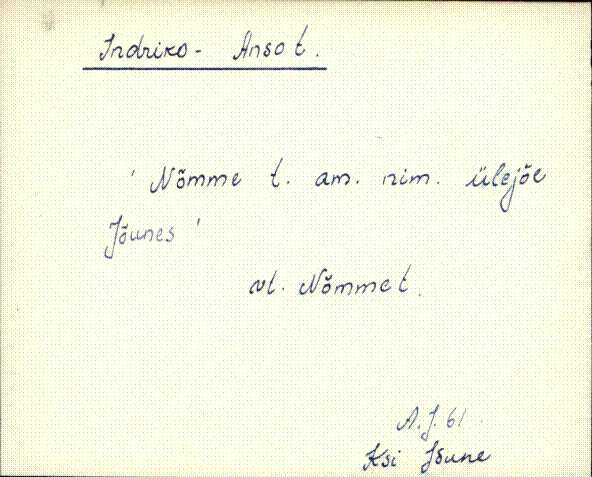 Indriko- Anso t.
' Nõmme t. am. nim. ülejõe
Jõunes '
vt. Nõmme t.
A.J. 61.
Ksi Jõune